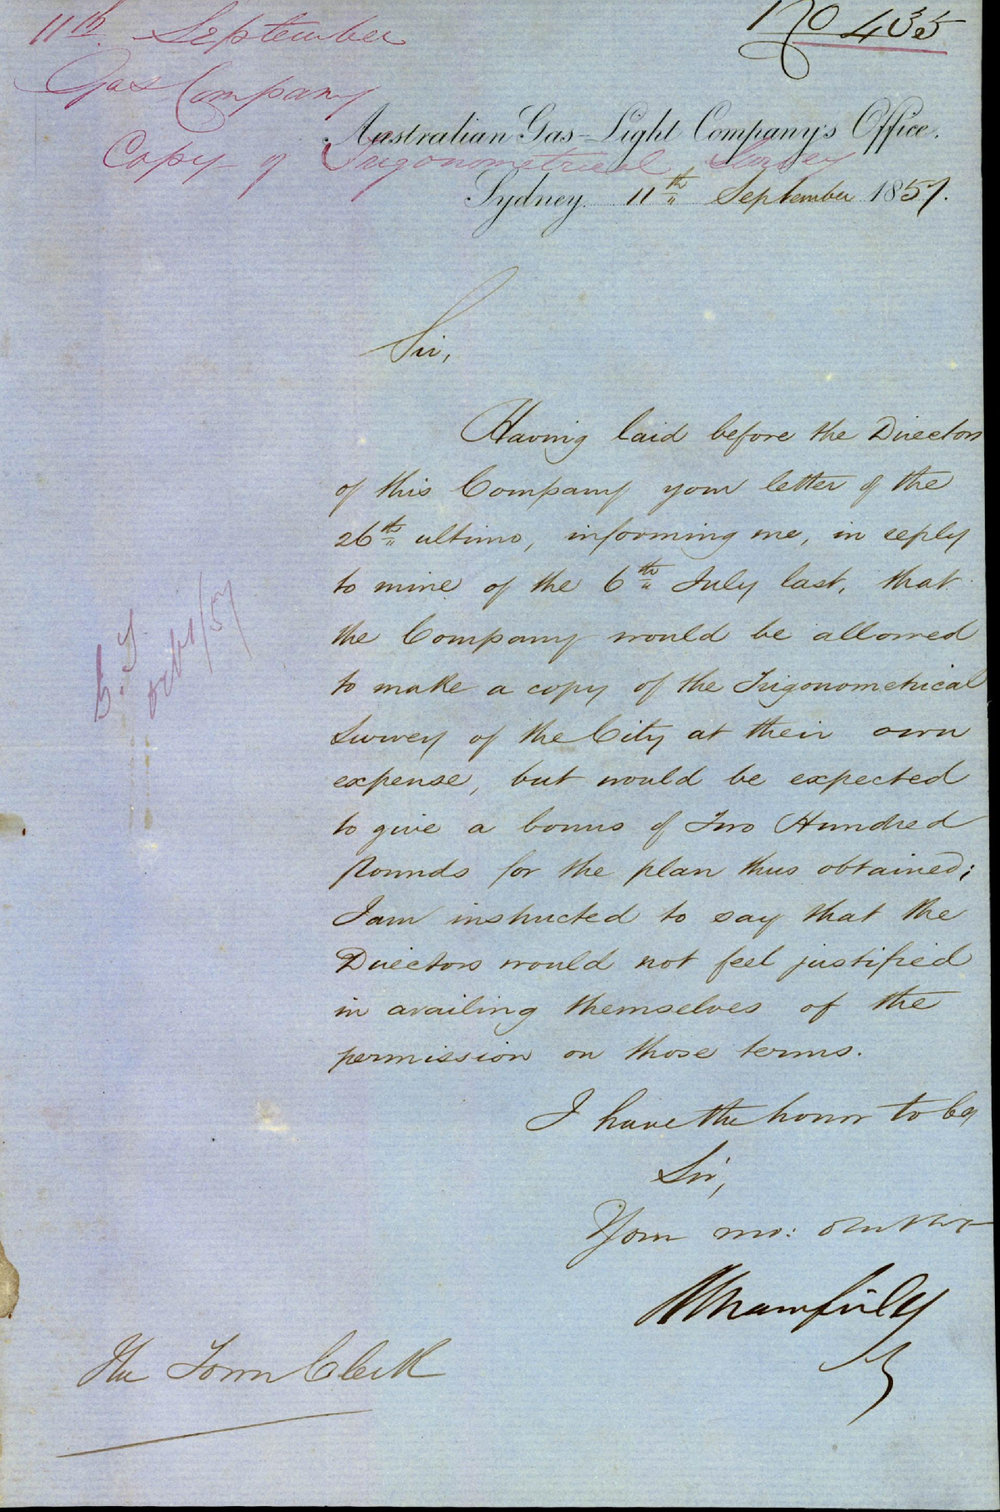 11th September
No 435
Gas Company
Australian Gas-Light Company's Office.
Copy of Trigonometrical Survey
Sydney. 11th September 1857.
Sir,
Having laid before the Directors
of this Company your letter of the
26th ultimo, informing me, in reply
to mine of the 6th July last, that
the Company would be allowed
to make a copy of the Trigonometrical
Survey of the City at their own
expense, but would be expected
to give a bonus of Two Hundred
Pounds for the plan thus obtained;
I am instructed to say that the
Directors would not feel justified
in availing themselves of the
permission on those terms.
I have the honor to be
Sir,
Your mo: obt Servt
The Town Clerk
Oct 1/57